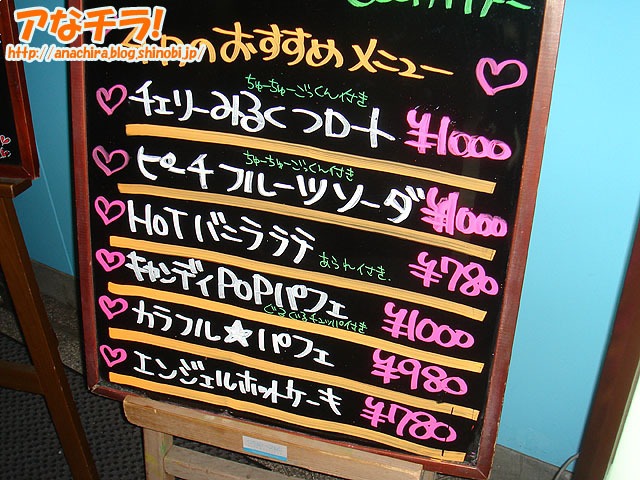 アなチラ!
http://anachira.blog.shinobi.jp/
のおすすめメニュー
ちゅーちゅーごっくん付き
チェリーみるくフロート ¥1000
ちゅーちゅーごっくん付き
ピーチフルーツソーダ ¥1000
HOTバニララテ ¥780
あられ付き
キャンディPOPパフェ ¥1000
ぐるぐるチュッパ付き
カラフル★パフェ ¥980
エンジェルホットケーキ ¥780